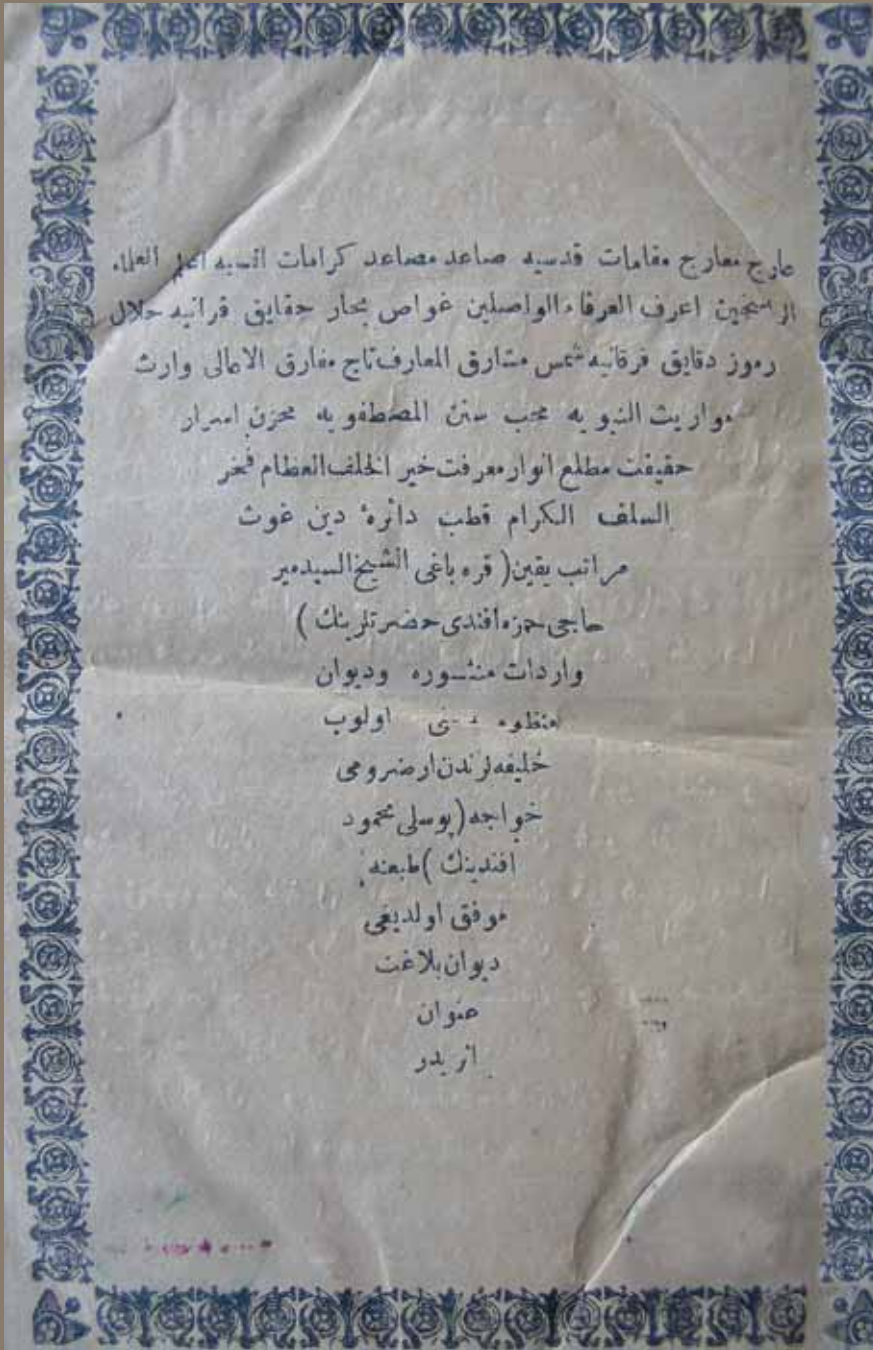 عارج معارج مقامات قدسيه صاعد مصاعد كرامات انسيه اعلم العلماء
الراسخين اعرف العرفاء الواصلين غواص بحار حقايق قرانيه حلال
رموز دقايق فرقانيه شمس مشارق المعارف تاج مفارق الاعالى وارث
مواريث النبويه محب سنن المصطفويه مخزن اسرار
حقيقت مطلع انوار معرفت خير الخلف العظام فخر
السلف الكرام قطب دائرهٔ دين غوث
مراتب يقين ( قره باغى الشيخ السيد مير
حاجى حمزه افندى حضرتلرينك )
واردات منثوره وديوان
منظومه اولوب
خليفه لرندن ارضرومى
خواجه ( يوسلى محمود
افندينك ) طبعنه
موفق اولديغى
ديوان بلاغت
عنوان
لريدر